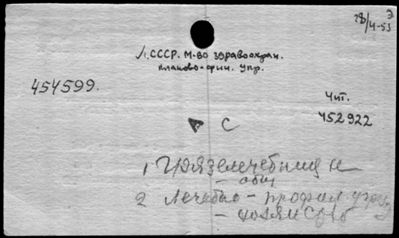 28/4-53
1. СССР. М-во здравоохран.
планово-фин. упр.
454599.
Чит.
452922
С
1 Грязелечебница
- общ
2 Лечебно - профил учр